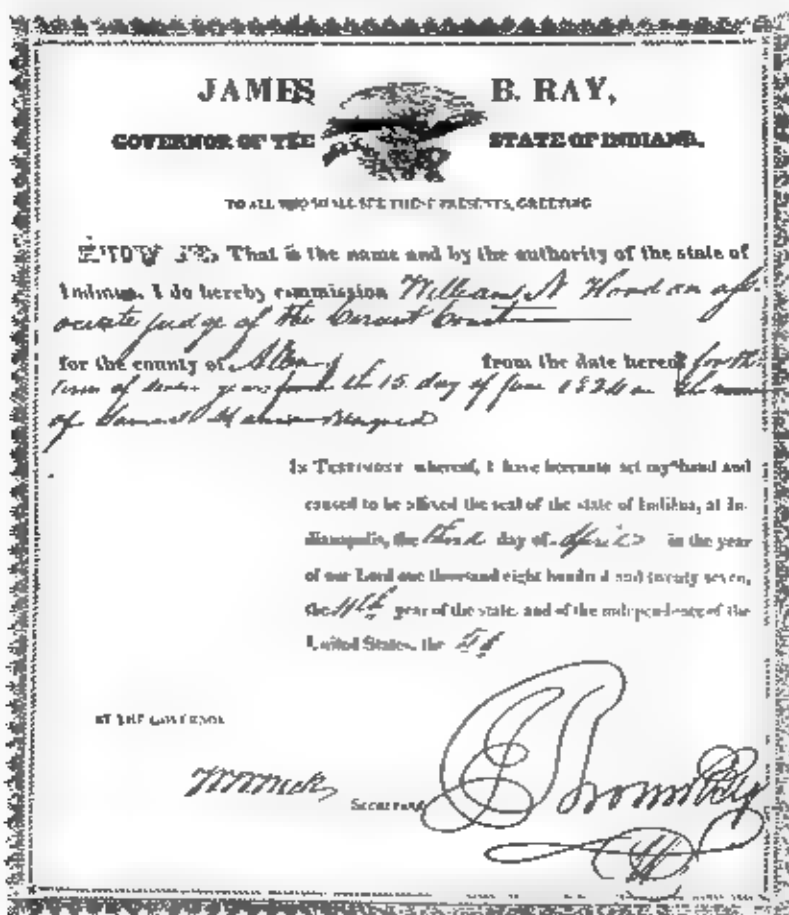 JAMES B. RAY,
GOVERNOR OF THE STATE OF INDIANA.
TO ALL WHO SHALL SEE THESE PRESENTS, GREETING
KNOW YE, That in the name and by the authority of the state of
Indiana, I do hereby commission William N Hood an ass-
ociate judge of the Circuit Court
for the county of Allen from the date hereof for the
term of seven years from the 15 day of June 1824
of Samuel Resigned
In Testimony whereof, I have hereunto set my hand and
caused to be affixed the seal of the state of Indiana, at In-
dianapolis, the third day of April in the year
of our Lord one thousand eight hundred and twenty seven,
the 11th year of the state, and of the independence of the
United States, the 51
BY THE GOVERNOR
Secretary